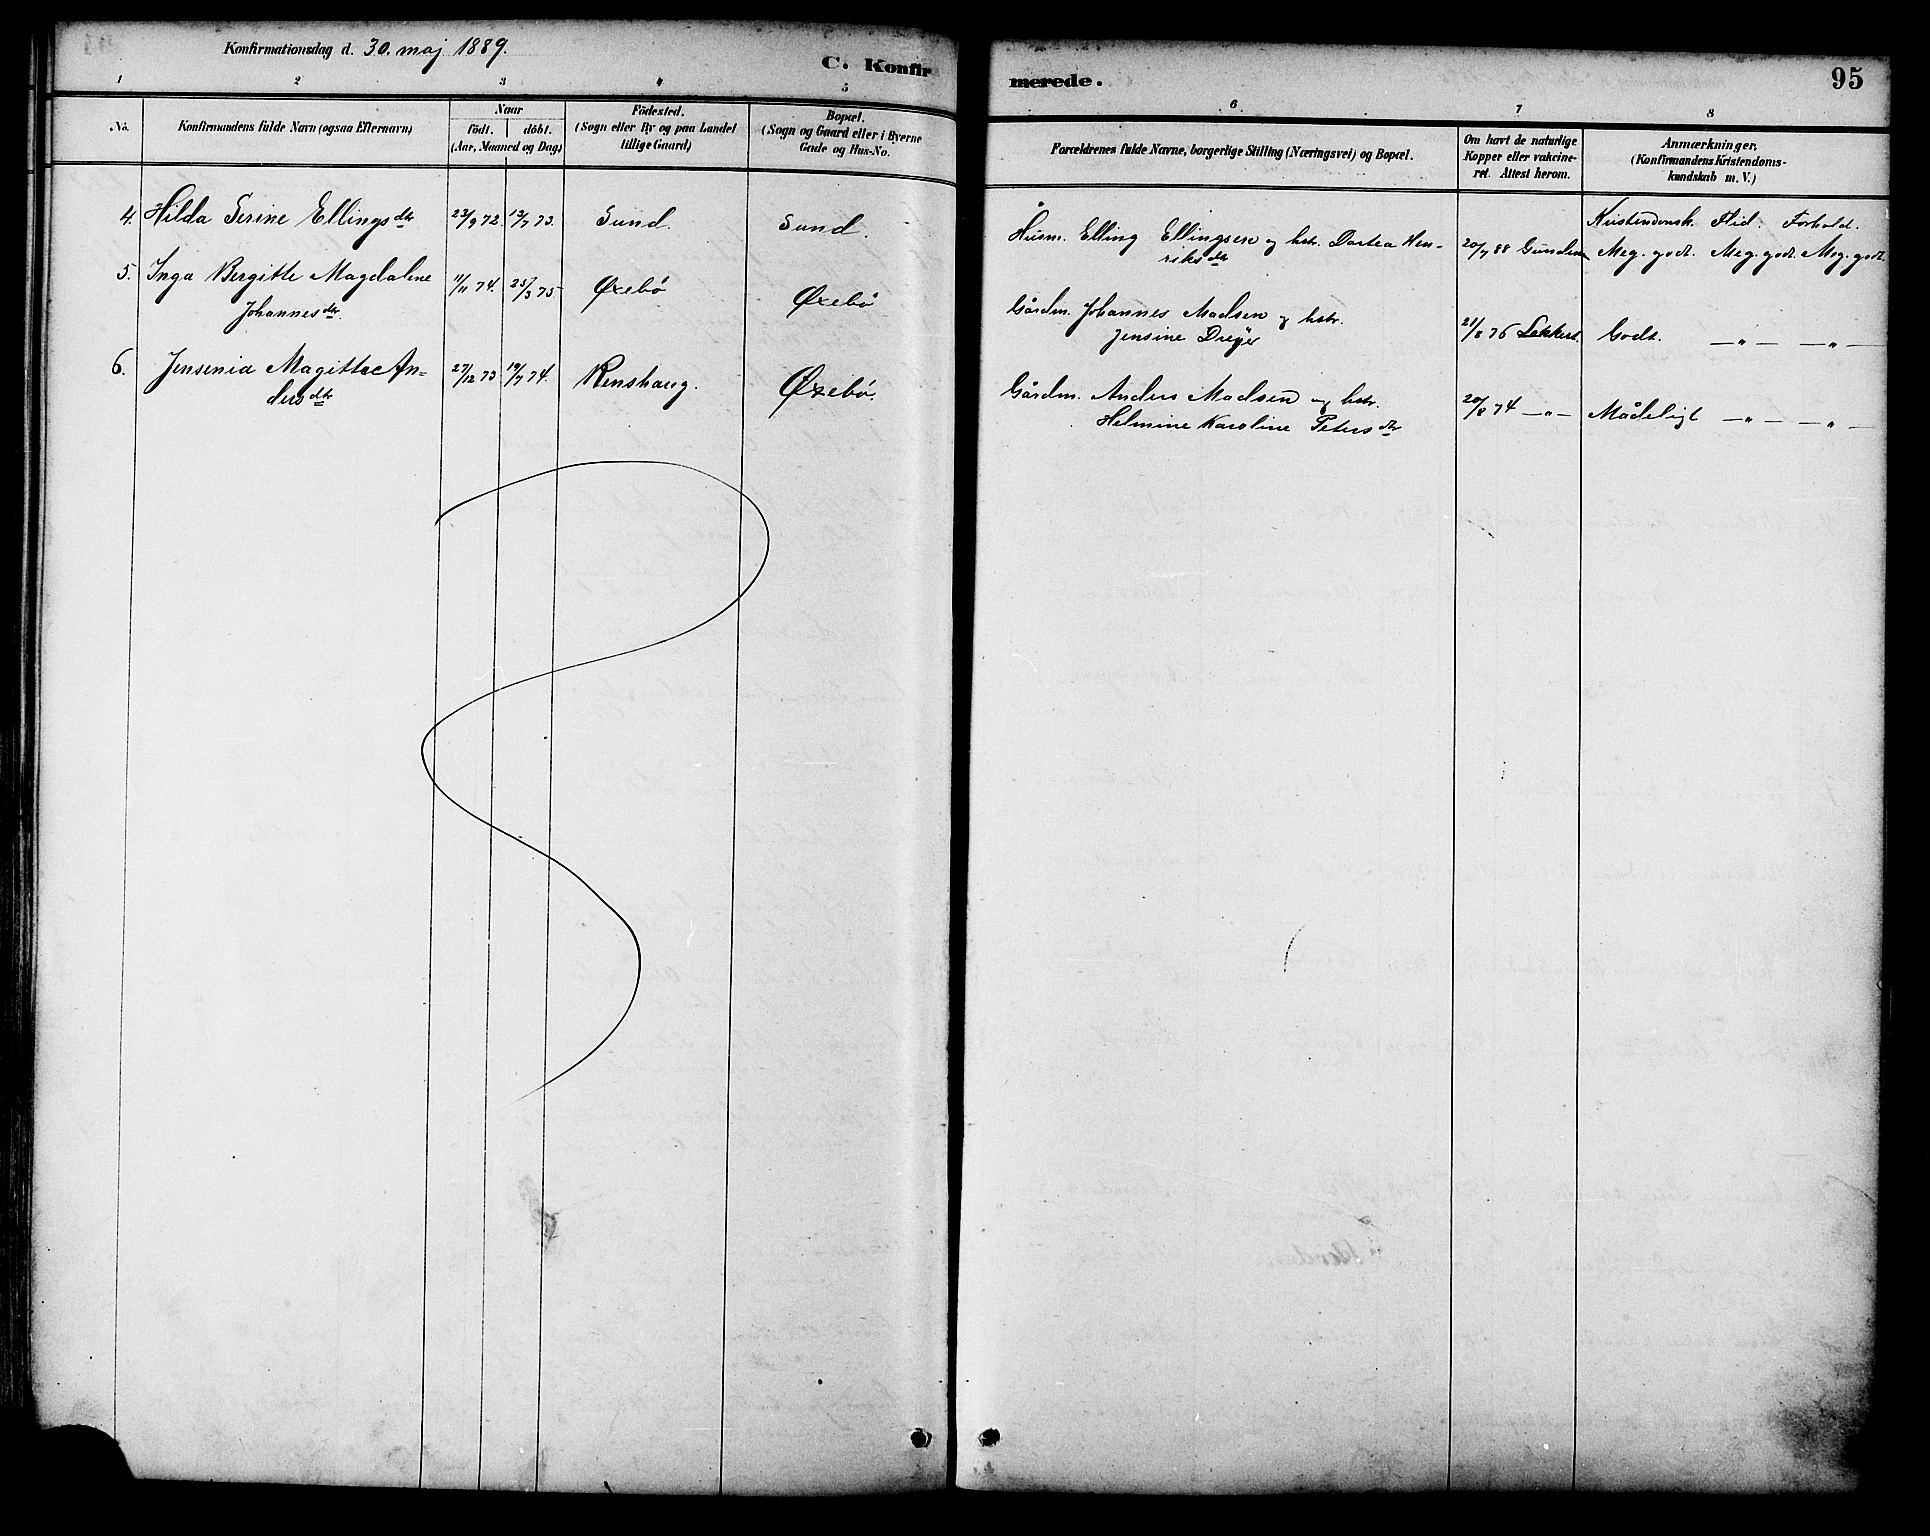 Konfirmationsdag d. 30. maj 1889.
C. Konfirmerede.
95
1 2 3 4 5 6 7 8
No.
Konfirmandens fulde Navn (ogsaa Efternavn)
Naar
födt. döbt.
(Aar, Maaned og Dag)
Födested.
(Sogn eller By og paa Landet
tillige Gaard)
Bopæl.
(Sogn og Gaard eller i Byerne
Gade og Hus-No.
Forældrenes fulde Navne, borgerlige Stilling (Næringsvei) og Bopæl.
Om havt de naturlige
Kopper eller vakcine-
ret. Attest herom.
Anmærkninger.
(Konfirmandens Kristendoms-
kundskab m. V.)
Kristendomsk. Flid. Forhold.
4. Hilda Serine Ellingsdtr 23/9 72. 13/7 73. Sund. Sund. Husm. Elling Ellingsen og hstr. Dortea Hen-
riksdtr 20/7 88 Meg. godt. Meg. godt. Meg. godt.
5. Inga Bergitte Magdalene
Johannesdtr. 11/11 74. 25/3 75 Øxebø Øxebø Gårdm. Johannes Madsen og hstr.
Jensine Dreyer 21/8 76 Godt. —„— —„—
6. Jensenia Magitta An-
dersdtr 27/12 73 19/7 74. Renshaug. Øxebø. Gårdm. Anders Madsen og hstr.
Helmine Karoline Petersdtr 20/8 74 —„— Mådeligt —„— —„—